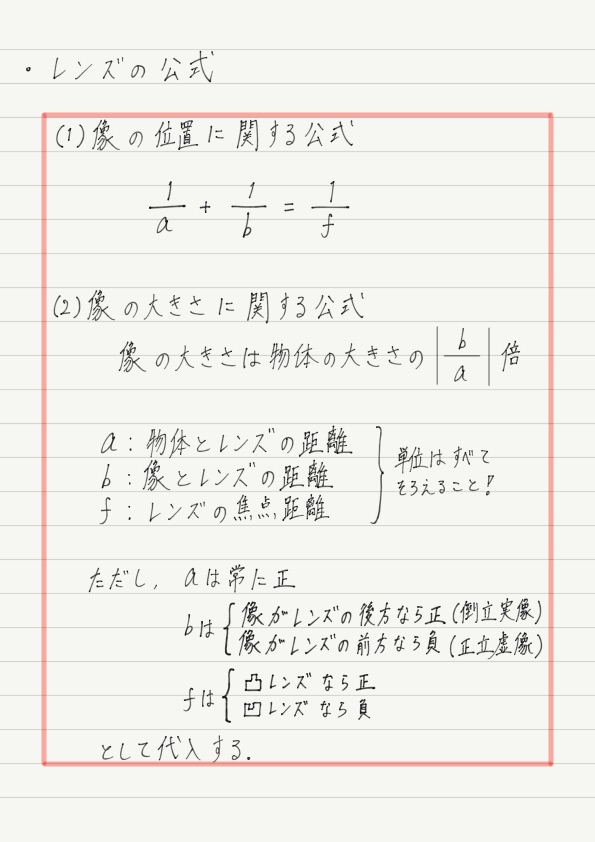 ・レンズの公式
(1)像の位置に関する公式
1/a + 1/b = 1/f
(2)像の大きさに関する公式
像の大きさは物体の大きさの|b/a|倍
a：物体とレンズの距離
b：像とレンズの距離
f：レンズの焦点距離
単位はすべて
そろえること!
ただし，aは常に正
bは{像がレンズの後方なら正(倒立実像)
像がレンズの前方なら負(正立虚像)
fは{凸レンズなら正
凹レンズなら負
として代入する.